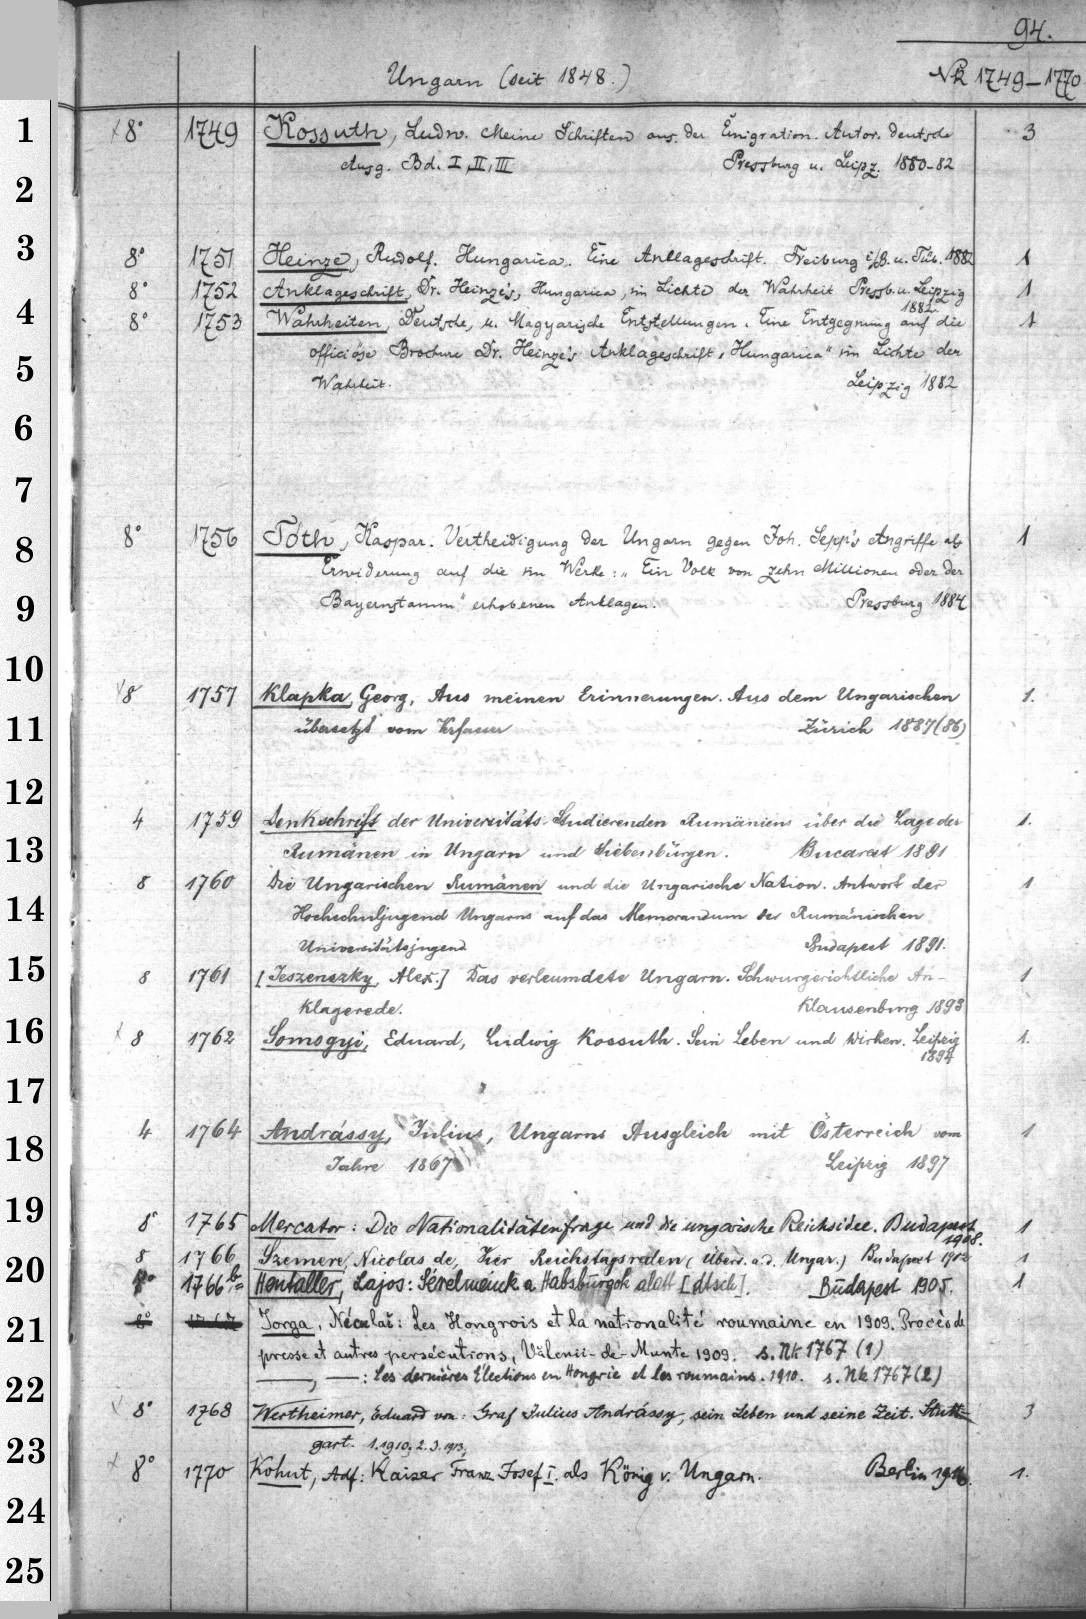 94.
Ungarn (seit 1848.) Nk 1749–1770
8° 1749 Kossuth, Ludw. Meine Schriften aus der Emigration. Autor. deutsche 3
Ausg. Bd. I, II, III Pressburg u. Leipz. 1880-82
8° 1751 Heinze, Rudolf. Hungarica. Eine Anklageschrift. Freiburg i/B. u. Tüb. 1882 1
8° 1752 Anklageschrift, Dr. Heinze's, Hungarica, im Lichte der Wahrheit Pressb. u. Leipzig 1
1882.
8° 1753 Wahrheiten, Deutsche, u. Magyarische Entstellungen. Eine Entgegnung auf die 1
officiöse Brochure Dr. Heinze's Anklageschrift „Hungarica" im Lichte der
Wahrheit. Leipzig 1882
8° 1756 Tóth, Kaspar. Vertheidigung der Ungarn gegen Joh. Sepp's Angriffe als 1
Erwiderung auf die im Werke: „Ein Volk von zehn Millionen oder der
Bayernstamm" erhobenen Anklagen. Pressburg 1884
8 1757 Klapka, Georg, Aus meinen Erinnerungen. Aus dem Ungarischen 1.
übersetzt vom Verfasser Zürich 1887(86)
4 1759 Denkschrift der Universitäts-Studierenden Rumäniens über die Lage der 1.
Rumänen in Ungarn und Siebenbürgen. Bucarest 1891
8 1760 Die Ungarischen Rumänen und die Ungarische Nation. Antwort der 1
Hochschuljugend Ungarns auf das Memorandum der Rumänischen
Universitätsjugend Budapest 1891.
8 1761 [Jeszenszky, Alex.] Das verleumdete Ungarn. Schwurgerichtliche An- 1
klagerede. Klausenburg 1893
8 1762 Somogyi, Eduard, Ludwig Kossuth. Sein Leben und Wirken. Leipzig 1.
1894
4 1764 Andrássy, Julius, Ungarns Ausgleich mit Österreich vom 1
Jahre 1867 Leipzig 1897
8° 1765 Mercator: Die Nationalitätenfrage und die ungarische Reichsidee. Budapest 1
1908.
8 1766 Szemere, Nicolas de, Vier Reichstagsreden (Übers. a. d. Ungar.) Budapest 1902 1
1766b Hentaller, Lajos: Sérelmeink a Habsburgok alatt [dtsch]. Budapest 1905. 1
8° 1767 Jorga, Nécolaï: Les Hongrois et la nationalité roumaine en 1909. Procès de
presse et autres persécutions, Vălenii-de-Munte 1909. s. Nk 1767 (1)
——, —: Les dernières Élections en Hongrie et les roumains. 1910. s. Nk 1767(2)
8° 1768 Wertheimer, Eduard von: Graf Julius Andrássy, sein Leben und seine Zeit. Stutt- 3
gart. 1. 1910, 2. 3. 1913,
8° 1770 Kohut, Adf: Kaiser Franz Josef I. als König v. Ungarn. Berlin 1916. 1.
1
2
3
4
5
6
7
8
9
10
11
12
13
14
15
16
17
18
19
20
21
22
23
24
25